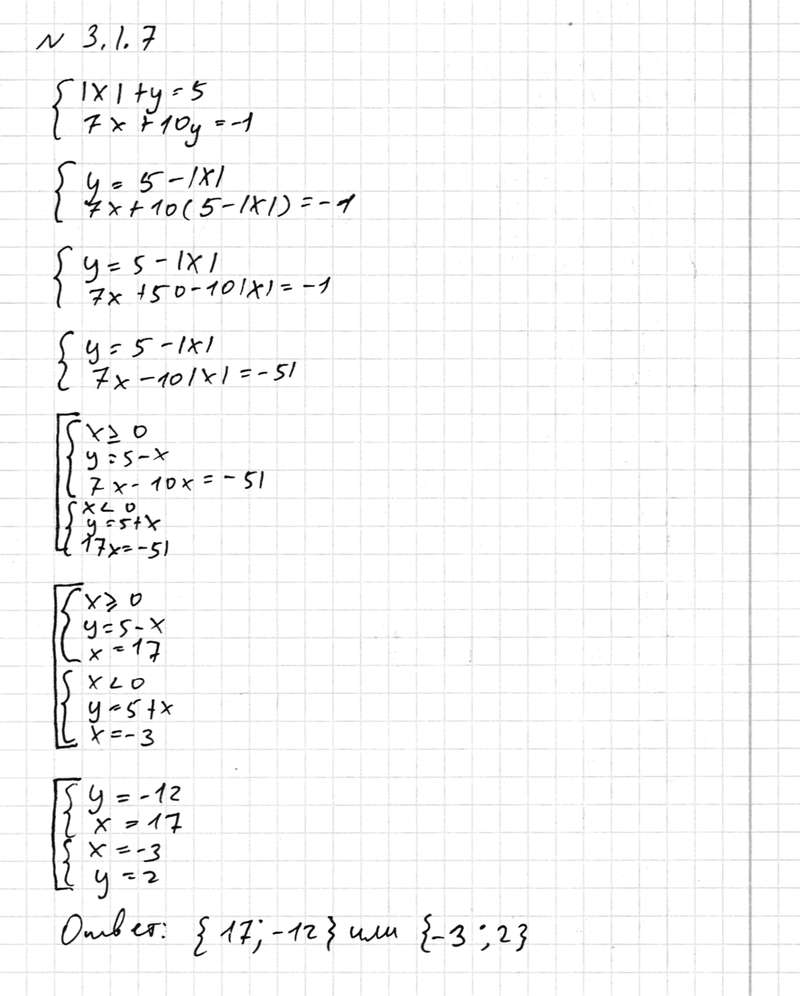 № 3.1.7
|x| + y = 5
7x + 10y = -1
y = 5 - |x|
7x + 10(5 - |x|) = -1
y = 5 - |x|
7x + 50 - 10|x| = -1
y = 5 - |x|
7x - 10|x| = -51
x ≥ 0
y = 5 - x
7x - 10x = -51
x < 0
y = 5 + x
17x = -51
x ≥ 0
y = 5 - x
x = 17
x < 0
y = 5 + x
x = -3
y = -12
x = 17
x = -3
y = 2
Ответ: {17; -12} или {-3; 2}